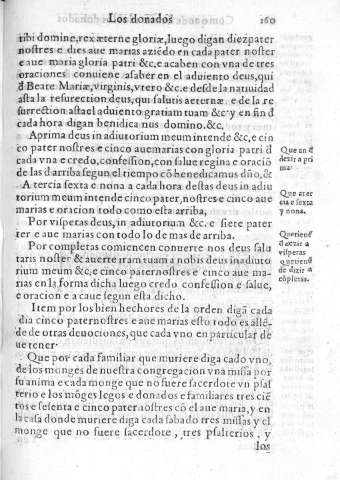 Los donados 160
tibi domine, rex æternæ gloriæ, luego digan diez pater
nostres e diez aue marias aziēdo en cada pater noster
e aue maria gloria patri &c, e acaben con vna de tres
oraciones conuiene asaber en el aduiento deus, qui
đ Beate Mariæ, virginis, vtero &c. e desde la natiuidad
asta la resurection deus, qui salutis aeternæ e de la re
surrection asta el aduiento gratiam tuam &c. y en fin đ
cada hora digan benidica nus domino. &c.
A prima deus in adiutorium meum intende &c, e cin
co pater nostres e cinco aue marias con gloria patri đ
cada vna e credo, confession, con salue regina e oració
de las đ arriba segun el tiempo cō benedicamus dño, &
A tercia sexta e nona a cada hora destas deus in adiu
torium meum intende cinco pater, nostres e cinco aue
marias e oracion todo como esta arriba,
Por visperas deus, in adiutorium &c. e siete pater
ter e aue marias con todo lo de mas de arriba.
Por completas comiencen conuerte nos deus salu
taris noster & auerte iram tuam a nobis deus in adiuto
rium meum &c, e cinco paternostres e cinco aue ma-
rias en la forma dicha luego credo confession e salue,
e oracion e a caue segun esta dicho.
Item por los bien hechores de la orden digā cada
dia cinco paternostres e aue marias esto todo es allē-
de de otras deuociones, que cada vno en particular de
ue tener.
Que por cada familiar que muriere diga cada vno,
de los monges de nuestra congregacion vna missa por
su anima e cada monge que no fuere sacerdote vn psal
terio e los mōges legos e donados e familiares tres ciē
tos e sesenta e cinco pater nostres cō el aue maria, y en
la casa donde muriere diga cada sabado tres missas y el
monge que no fuere sacerdote, tres psalterios, y
los
Que an đ
dezir a pri
ma.
Que a ter
cia e sexta
y nona.
Que tienē
đ dezir a
visperas
que tienē
de dizir a
cōpletas.